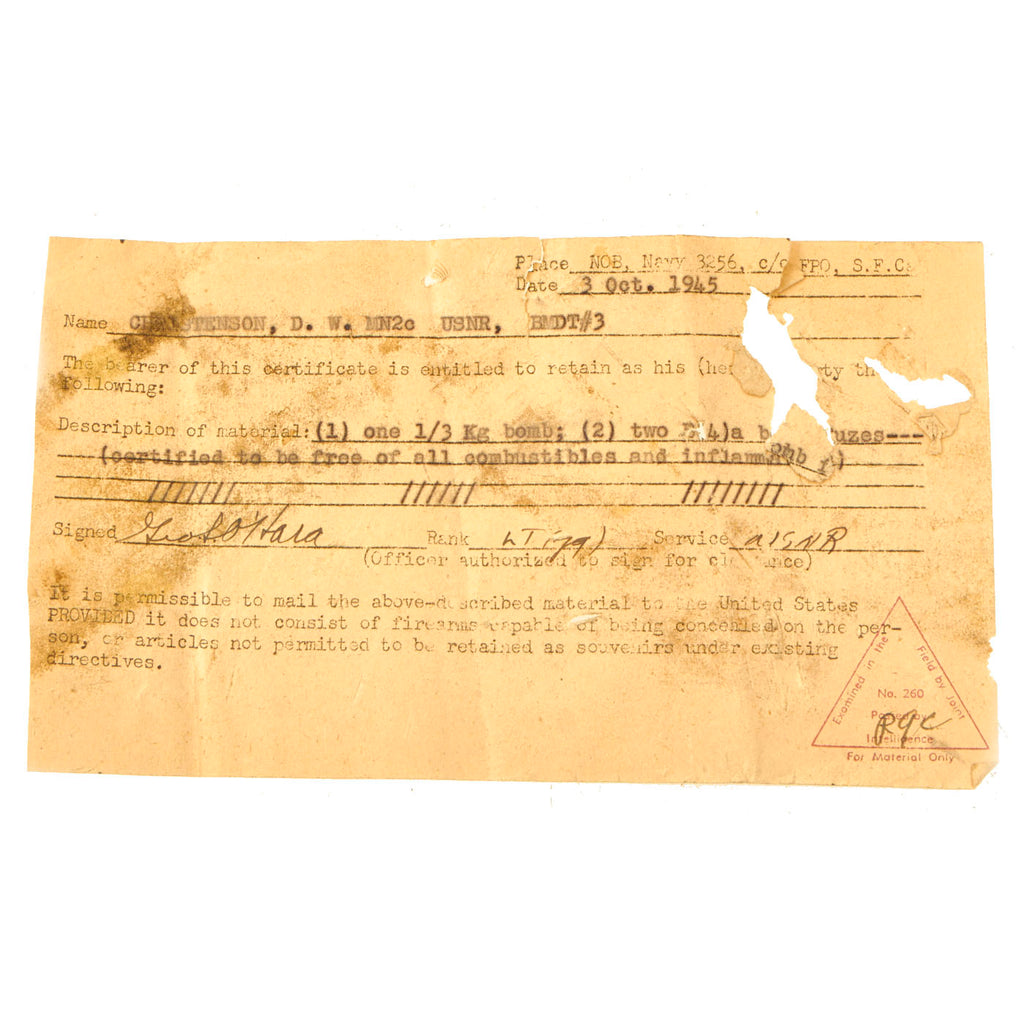 Place NOB, Navy 3256, c/o FPO, S.F.Ca
Date 3 Oct. 1945
Name CHRISTENSON, D. W. MN2c USNR, BMDT#3
The bearer of this certificate is entitled to retain as his (he ty th
following:
Description of material: (1) one 1/3 Kg bomb; (2) two (4)a b uzes---
(certified to be free of all combustibles and inflamm
///////// /////// /////////
Signed Geo S O'Hara Rank LT (jg) Service USNR
(Officer authorized to sign for clearance)
It is permissible to mail the above-described material to the United States
PROVIDED it does not consist of firearms capable of being concealed on the per-
son, or articles not permitted to be retained as souvenirs under existing
directives.
Examined in the Field by Joint
No. 260
Passed by
Intelligence
For Material Only